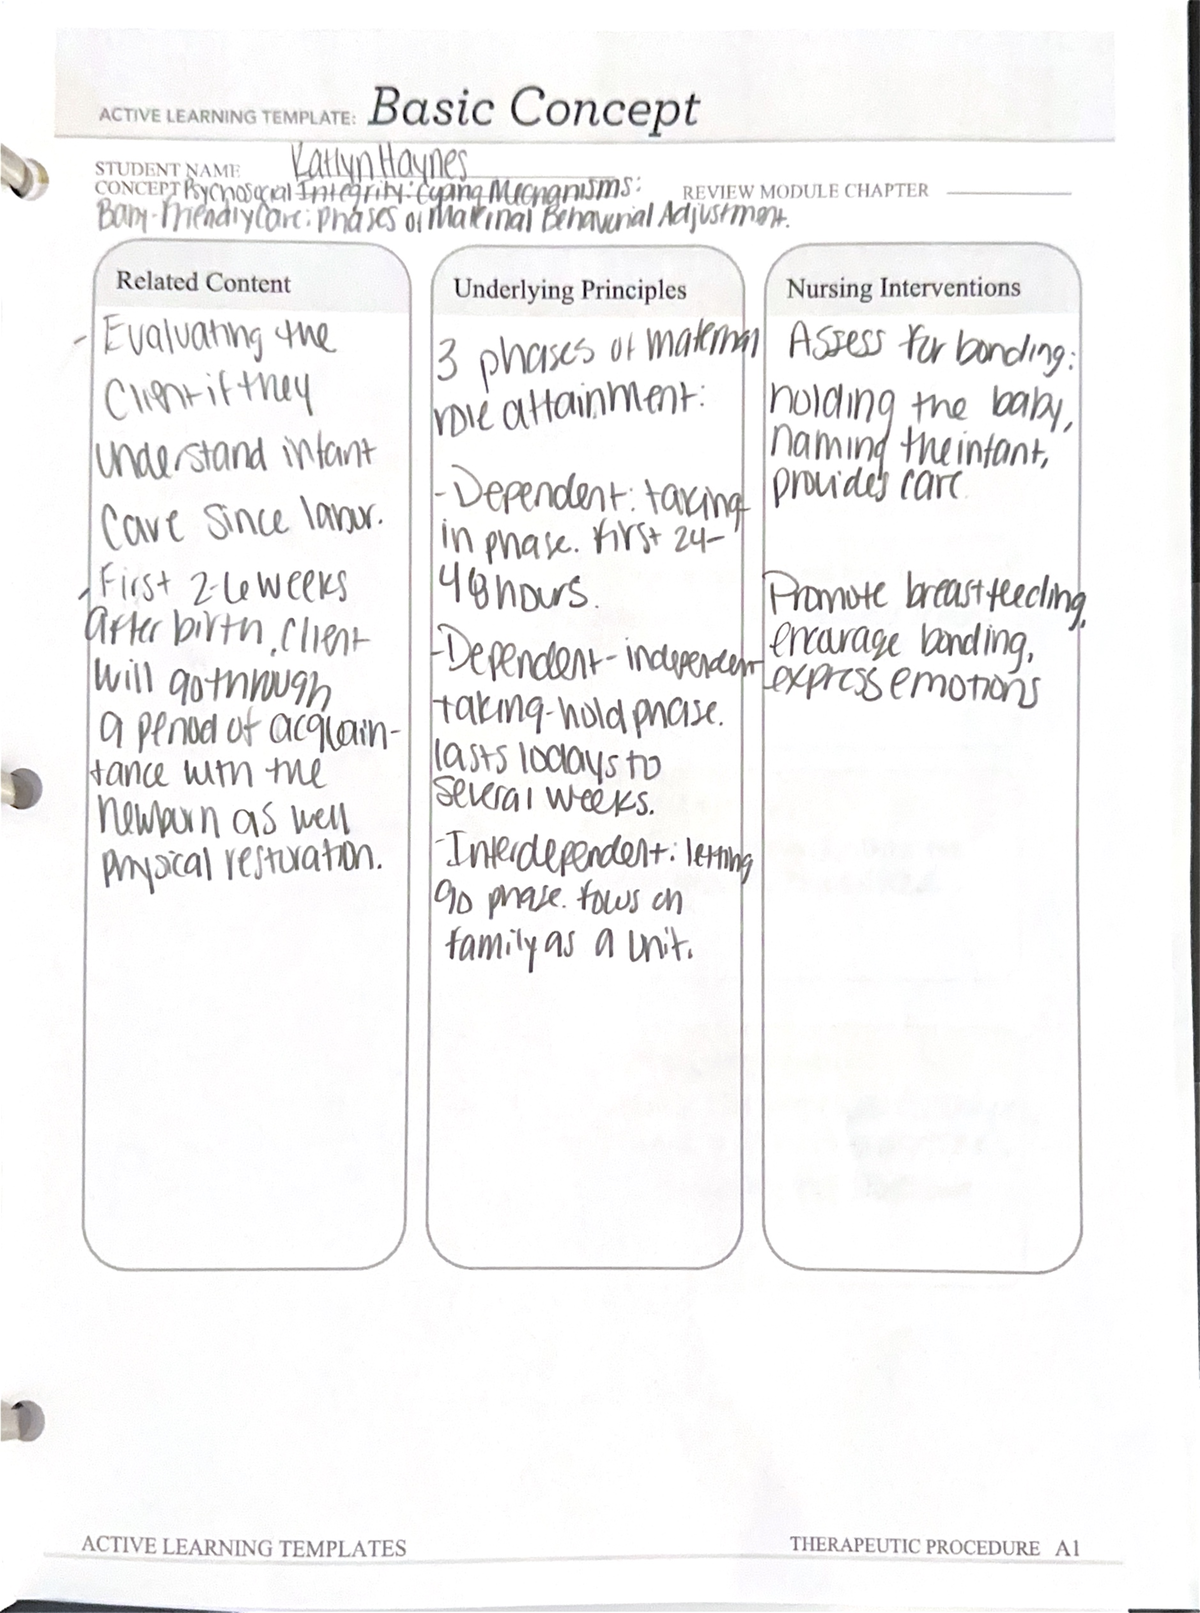 ACTIVE LEARNING TEMPLATE: Basic Concept
STUDENT NAME Katlyn Haynes
CONCEPT Psychosocial Integrity: Coping Mechanisms:
REVIEW MODULE CHAPTER
Baby-Friendly Care: Phases of Maternal Behavorial Adjustment.
Related Content
- Evaluating the
Client if they
understand infant
Care since labor.
- First 2-6 weeks
after birth, client
will go through
a period of acquain-
tance with the
newborn as well
physical restoration.
Underlying Principles
3 phases of maternal
role attainment:
- Dependent: taking
in phase. First 24-
48 hours.
- Dependent-independent
taking-hold phase.
lasts 10days to
several weeks.
- Interdependent: letting
go phase. focus on
family as a unit.
Nursing Interventions
Assess for bonding:
holding the baby,
naming the infant,
provides care
Promote breastfeeding,
encourage bonding,
express emotions
ACTIVE LEARNING TEMPLATES
THERAPEUTIC PROCEDURE A1